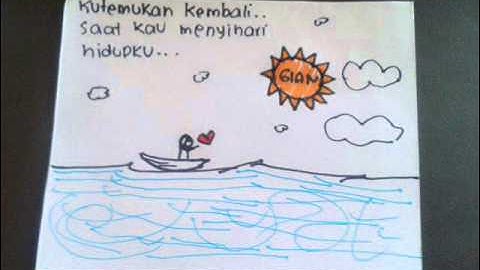 Kutemukan Kembali..
Saat Kau menyihari
hidupku...
GIAN